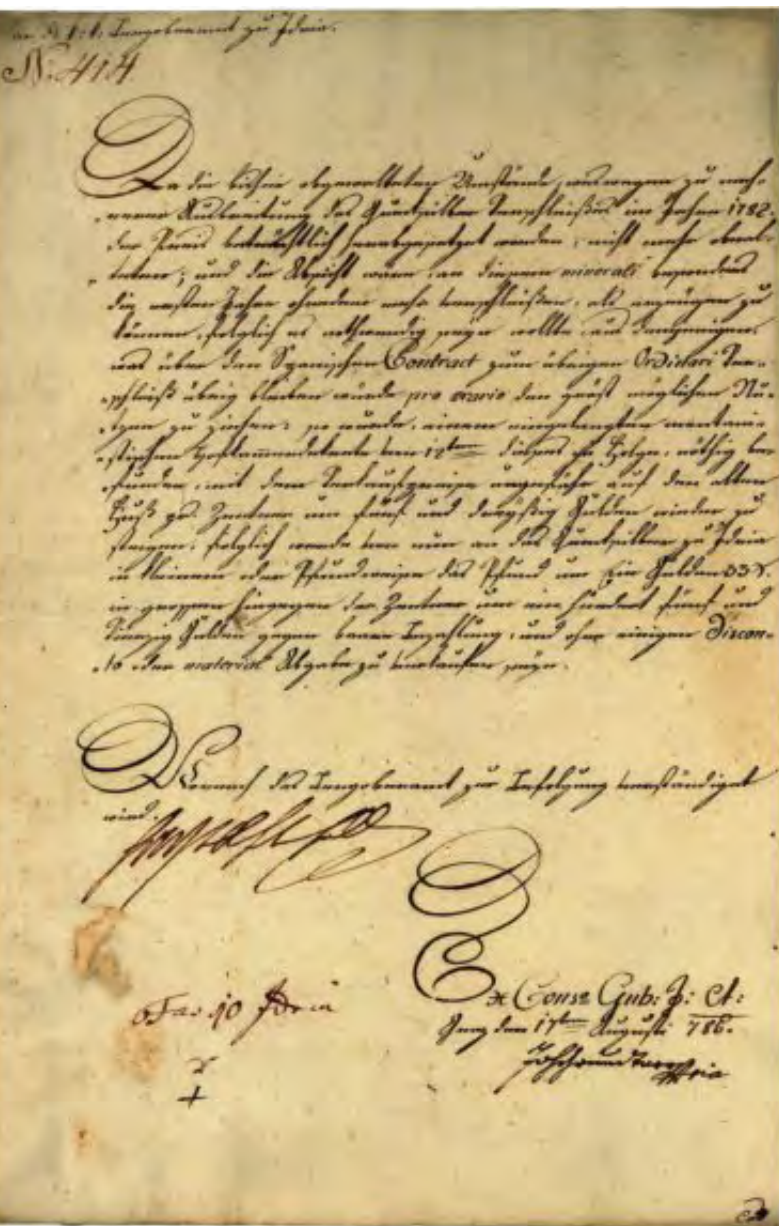 an d. k: k: Bergoberamt zu Idria.
N: 414
Da die bisher obgewalteten Umstände, weswegen zu meh-
rerer Ausbreitung des Quecksilber Verschleißes im Jahre 1782.
der Preis beträchtlich herabgesetzet worden, nicht mehr obwal-
teten; und die Absicht wäre an diesem minerali besonders
die ersten Jahre ohnedem mehr verschleißen, als erzeugen zu
können, folglich es nothwendig seyn wollte aus demjenigen
was über den Spanischen Contract zum übrigen Ordinari Ver-
schleiß übrig bleiben würde pro erario den größt möglichen Nu-
tzen zu ziehen; so wurde, einem eingelangten montani-
stischen Hofkammerdekrete von 12ten dieses zu Folge, nöthig be-
funden, mit dem Verkaufspreise ungefähr auf den alten
Fuß pr. Zentner um fünf und dreyßig Gulden wieder zu
steigen, folglich werde von nun an das Quecksilber zu Idria
in kleinem oder Pfundweise das Pfund um Ein Gulden 33 X.
in grossem hingegen der Zentner um ein hundert fünf und
Gulden gegen baare Bezahlung, und ohne einigen Discon-
to oder material Abgabe zu verkaufen seyn.
Wornach das Bergoberamt zur Befolgung verständiget
wird.
Idria
Ex Cons: Gub: I: A:
den 17ten Augusti 786.